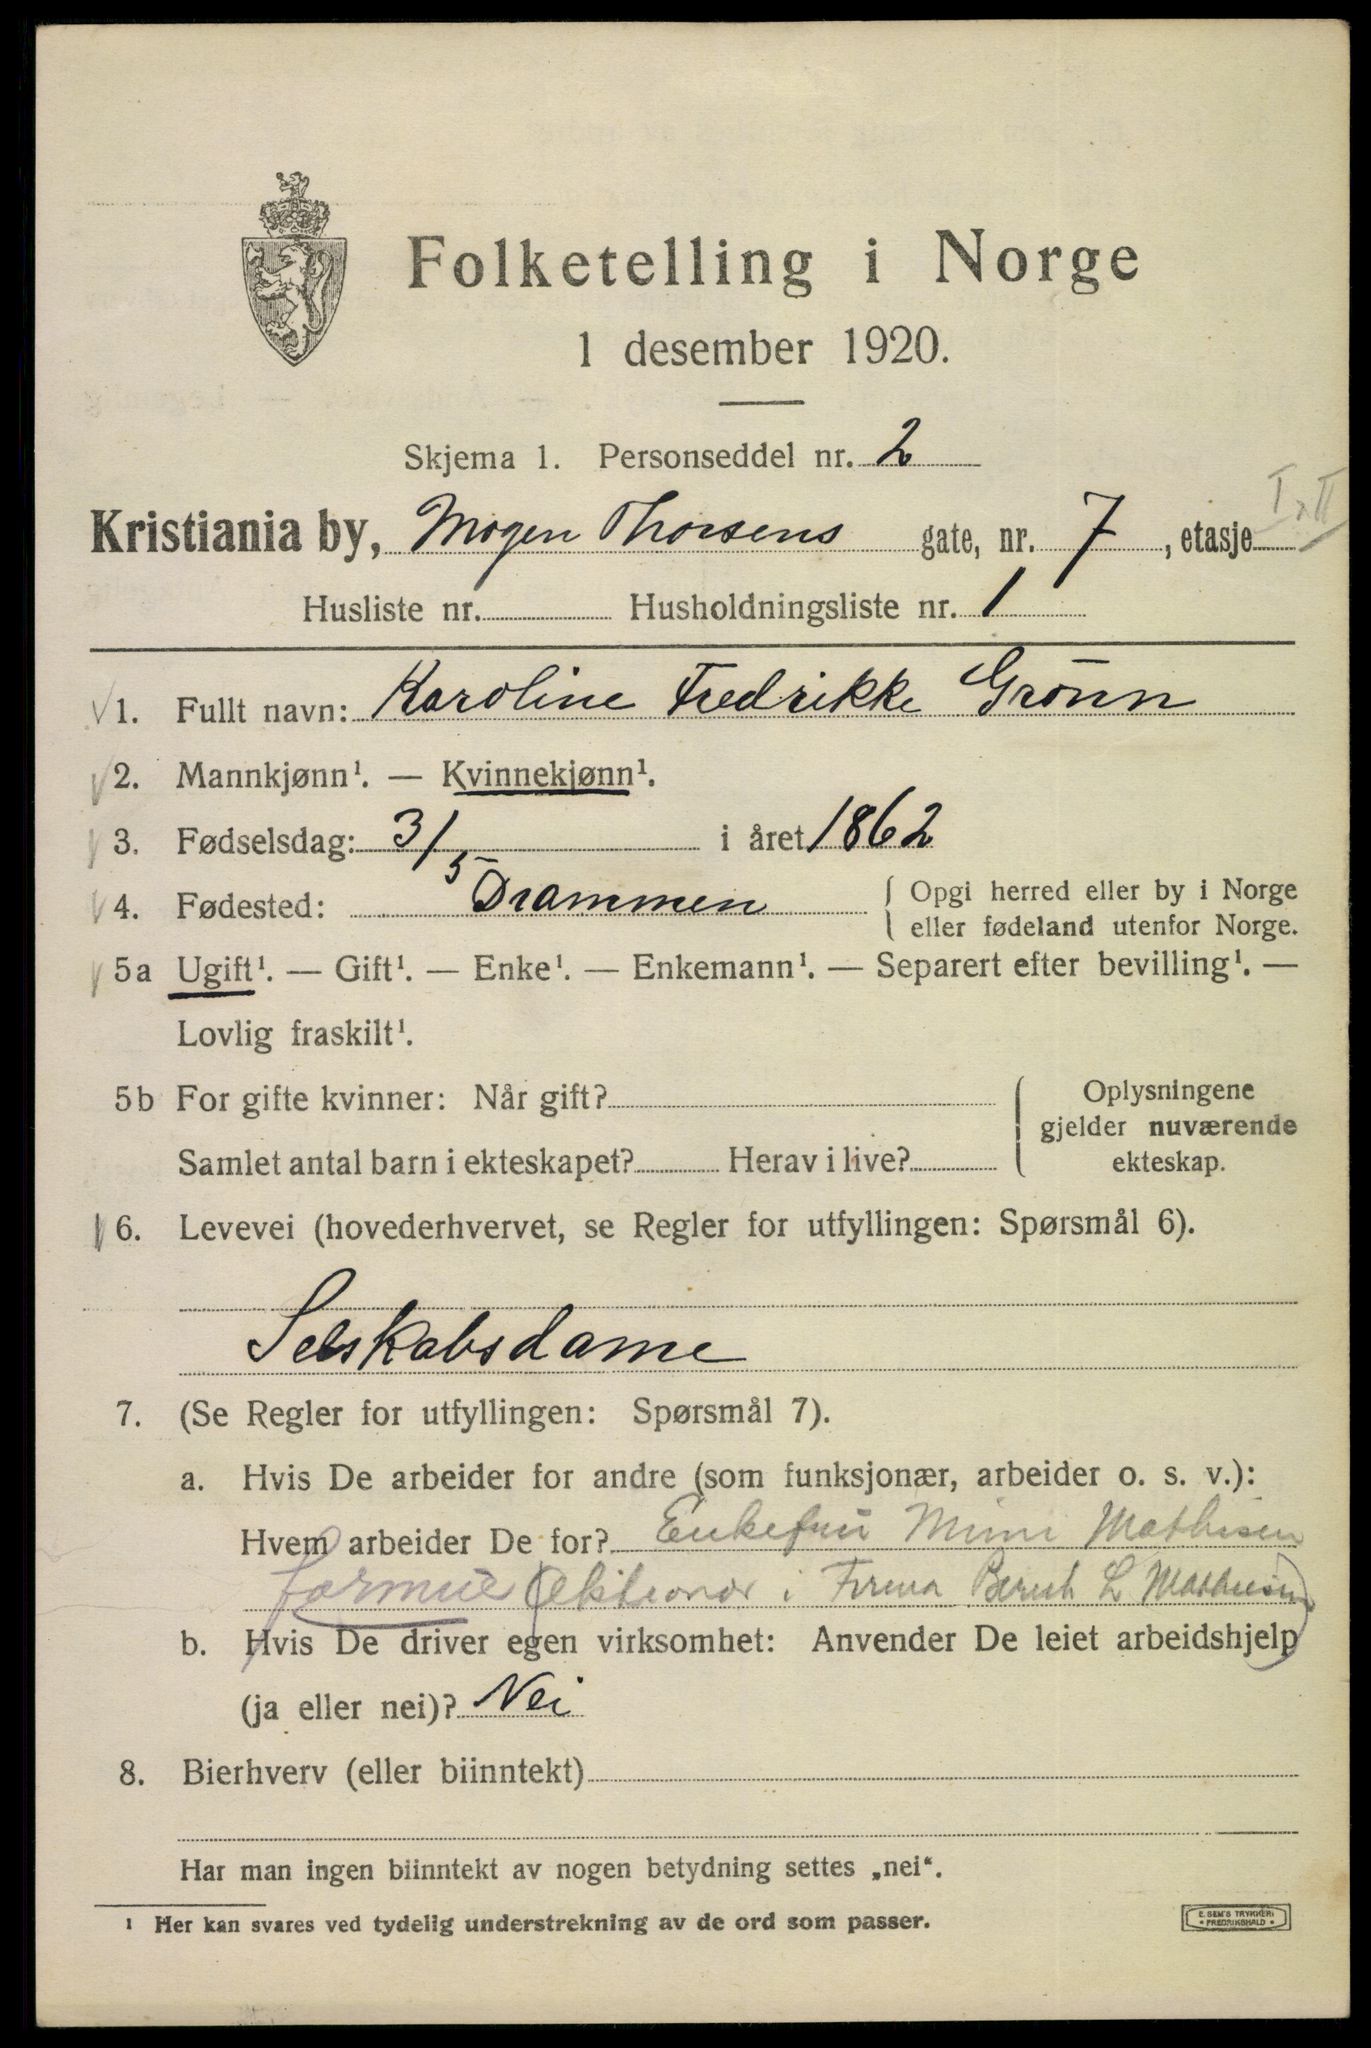 Folketelling i Norge
1 desember 1920.
Skjema 1. Personseddel nr. 2
Kristiania by, Mogen Thorsens gate, nr. 7, etasje I, II
Husliste nr. Husholdningsliste nr. 1
1. Fullt navn: Karoline Fredrikke Grönn
2. Mannkjønn¹. — Kvinnekjønn¹.
3. Fødselsdag: 3/5 i året 1862
4. Fødested: Drammen { Opgi herred eller by i Norge
eller fødeland utenfor Norge.
5a Ugift¹. — Gift¹. — Enke¹. — Enkemann¹. — Separert efter bevilling¹. —
Lovlig fraskilt¹.
5b For gifte kvinner: Når gift?
Samlet antal barn i ekteskapet? Herav i live?
Oplysningene
gjelder nuværende
ekteskap.
6. Levevei (hovederhvervet, se Regler for utfyllingen: Spørsmål 6).
Selskabsdame
7. (Se Regler for utfyllingen: Spørsmål 7).
a. Hvis De arbeider for andre (som funksjonær, arbeider o. s. v.):
Hvem arbeider De for? Enkefru Mimi Mathisen
formue (Aktionær i Firma Bernt L. Mathisen)
b. Hvis De driver egen virksomhet: Anvender De leiet arbeidshjelp
(ja eller nei)? Nei
8. Bierhverv (eller biinntekt)
Har man ingen biinntekt av nogen betydning settes „nei“.
¹ Her kan svares ved tydelig understrekning av de ord som passer.
E. SEM'S TRYKKERI
FREDRIKSHALD